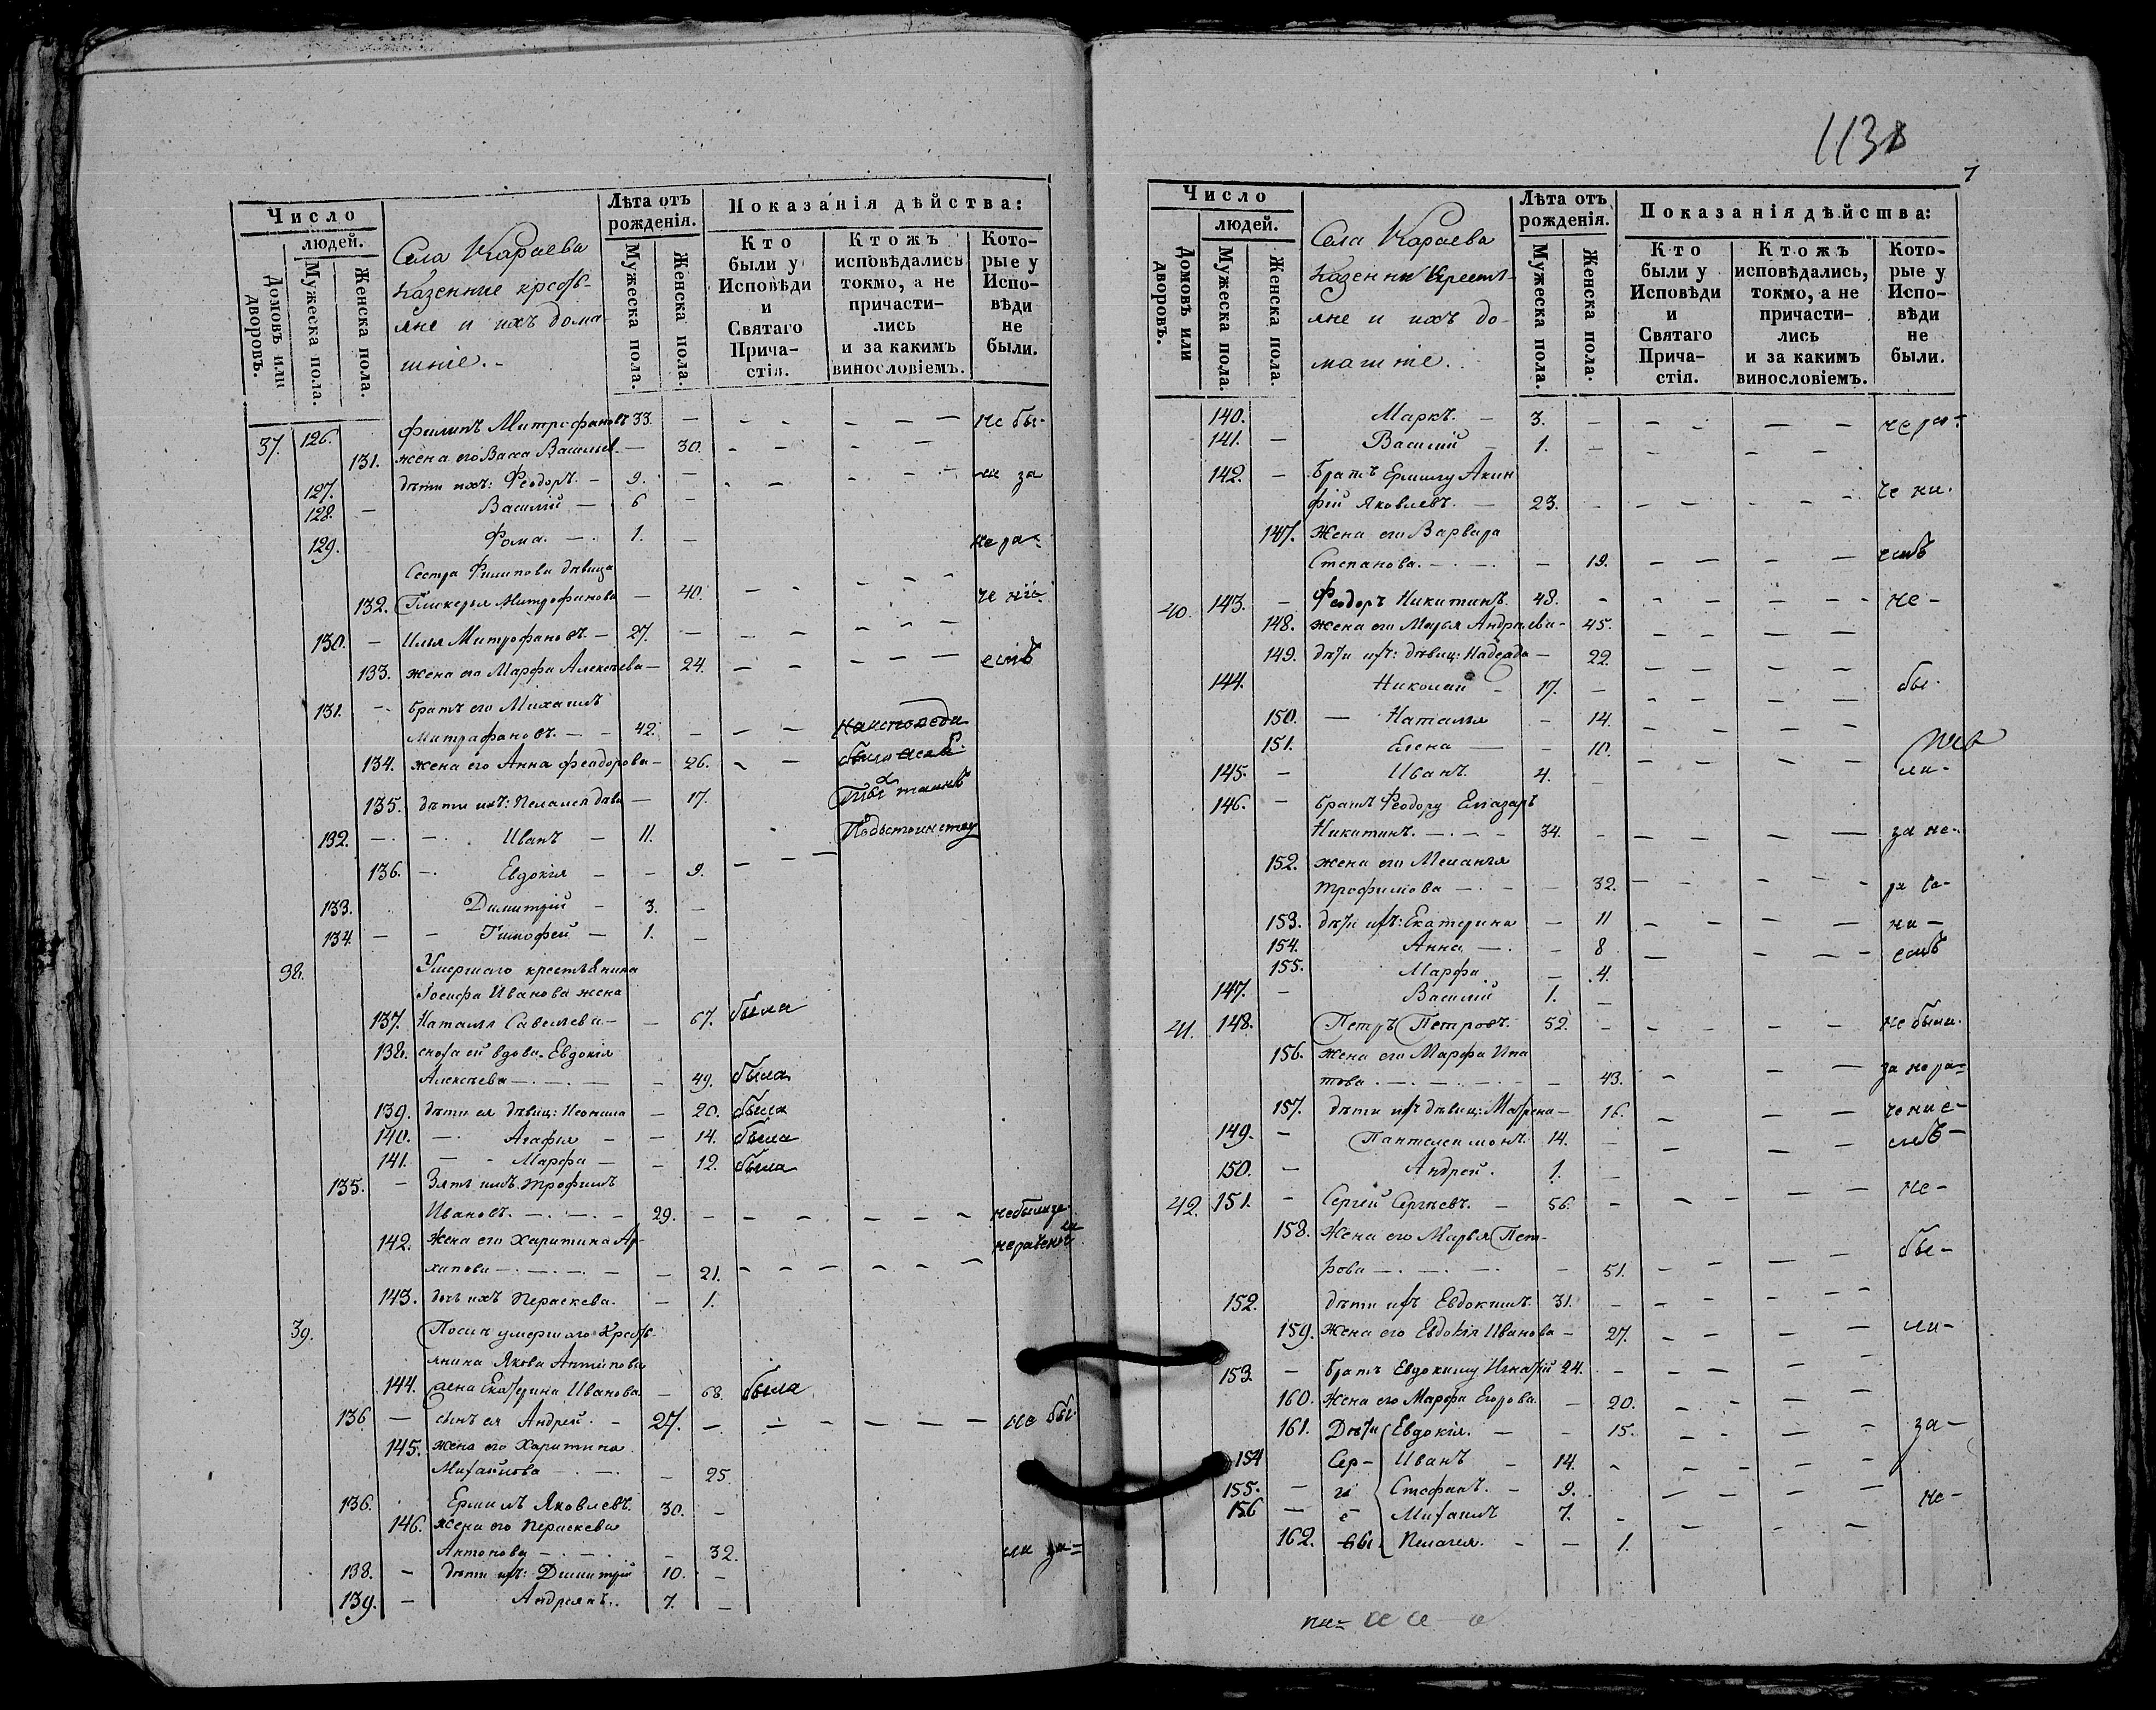 Число
людей.
Домовъ или дворовъ.
Мужеска пола.
Женска пола.
Села Караева
казенные кресть-
яне и ихъ дома
шніе.-
Лѣта отъ
рожденія.
Мужеска пола.
Женска пола.
Показанія дѣйства:
Кто
были у
Исповѣди
и
Святаго
Прича-
стія.
Ктожъ
исповѣдались
токмо, а не
причасти-
лись
и за какимъ
винословіемъ.
Кото-
рые у
Испо-
вѣди
не
были.
37. 126. Филипъ Митрофановъ 33. — - - - - — не бы-
131. жена его Васса Васильев. — 30. - - - - —
127. дѣти ихъ: Феодоръ. - 9. — - - - - - ли за
128. — Василій — 6 —
129. Фома. — . 1. — не ра-
Сестра Филипова дѣвица
132. Гликерья Митрофанова — 40. — - - - - - чені
130. - Илья Митрофановъ. - 27. — - - - - -
133. жена его Марфа Алексѣева — 24. - - - - — емъ
131. -. братъ его Михаилъ
Митрофановъ. - - 42. - - - на исповѣди
134. жена его Анна Феодорова - 26. - - были
135. дѣти ихъ: Пелагея дѣви — 17.
132. -. -. Иванъ - 11.
136. -. Евдокія - - 9. - - -
133. Димитрій - 3. -
134. — - Тимофей — 1. -
38. Умершаго крестьянина
Іосифа Иванова жена
137. Наталія Савельева — - 67. была
138. сноха ей вдова. Евдокія
Алексѣева — . — . — - 49. была
139. дѣти ея дѣвиц: Неонила — 20. была
140. —. Агафья - — 14. была
141. — - Марфа — - 12. была
135. - Зять имъ Трофимъ
Ивановъ. —. —. - 29. - - - - - - - не были за
142. Жена его Харитина Ар-
хипова —. —. — — 21. - - - - - - нераченіемъ
143. дочь ихъ Параскева. — 1.
39. Послѣ умершаго Кресть-
янина Якова Антипова
144. жена Екатерина Иванова. — 68. была
136 — сынъ ея Андрей. - 27. - - - - - - не бы-
145. жена его Харитина
Михайлова —. —. — 25.
136. Ермилъ Яковлевъ. 30. -
146. жена его Параскева
Антонова —. —. - 32. ли за=
138. - дѣти ихъ: Димитрій 10. -
139. - Андреянъ. 7. -
1138
7
Число
людей.
Домовъ или дворовъ.
Мужеска пола.
Женска пола.
Села Караева
казенные Кресть-
яне и ихъ до-
машніе.
Лѣта отъ
рожденія.
Мужеска пола.
Женска пола.
Показанія дѣйства:
Кто
были у
Исповѣди
и
Святаго
Прича-
стія.
Ктожъ
исповѣдались,
токмо, а не
причасти-
лись
и за какимъ
винословіемъ.
Кото-
рые у
Испо-
вѣди
не
были.
140. Маркъ. — 3. - - - - - - нера-
141. — Василій - 1. - - - -
142. - Братъ Ермилу Акин
фій Яковлевъ. — 23. - - - - - - чени-
147. Жена его Варвара
Степанова. —. —. - 19. - - - - - емъ
40. 143. - Феодоръ Никитинъ. 48. - - - - - - не-
148. жена его Марья Андреева - 45. - - - - -
149. дѣти ихъ: дѣвиц: Надежда — 22. - - - - -
144. Николай - 17. - - - - - - бы-
150. — Наталья - 14. - - - -
151. Елена — - 10. - - - - -
145. - Иванъ. 4. - ли-
146. - братъ Феодору Елеазаръ
Никитинъ. —. - - 34. - - - - - — за не-
152. жена его Меланія
Трофимова —. - — 32. - - - - - ра
153. дѣти ихъ: Екатерина — 11 - - - - че
154. Анна —. - 8 - - - - емъ
155. Марфа - 4.
147. - Василій 1. -
41. 148. Петръ Петровъ. 52. - - - - - - не были.
156. жена его Марфа Ипа
това. —. —. - - 43. - - — за нера=
157. дѣти ихъ дѣвиц: Матрена — 16. - - - чение-
149. - Пантелеимонъ. 14. - - - - емъ-
150. - Андрей. 1. -
42. 151. - Сергѣй Сергѣевъ. - 56. - - - - - - не-
158. Жена его Марья Пет-
рова —. —. - 51. - - - - - бы-
152. дѣти ихъ Евдокимъ. 31. - - - - - -
159. Жена его Евдокія Иванова — 27. - - - - - ли-
153. - братъ Евдокиму Игнатій 24. - - - - -
160. Жена его Марфа Егорова. - 20. - - - - -
161. Дѣти Евдокія. - - 15. - - - - за-
154 Сер- Иванъ - 14. - - - - -
155. - гѣ Стефанъ. - 9. - - - - - не-
156 — е- Михаилъ 7. - - - -
162. вы Пелагея. - - 1.